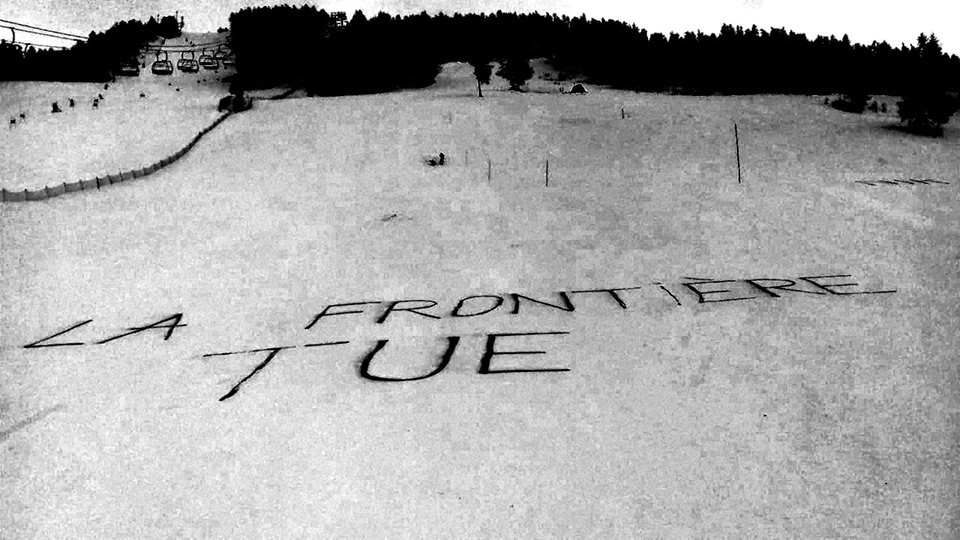 LA FRONTIÈRE
TUE